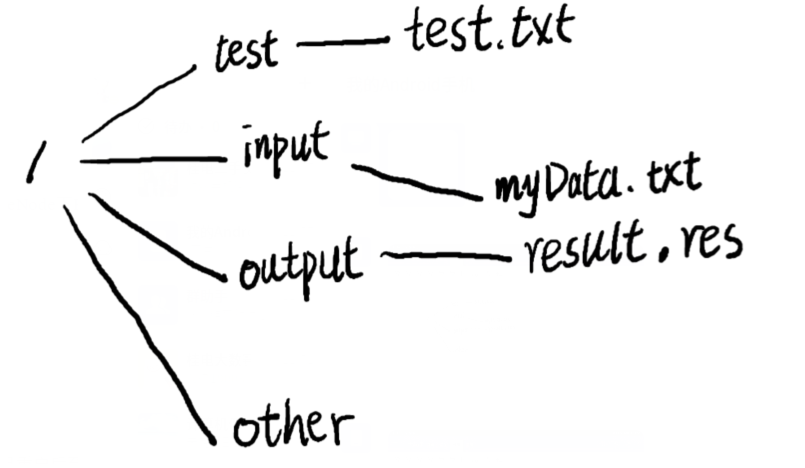 test test.txt
/ input myData.txt
output result.res
other